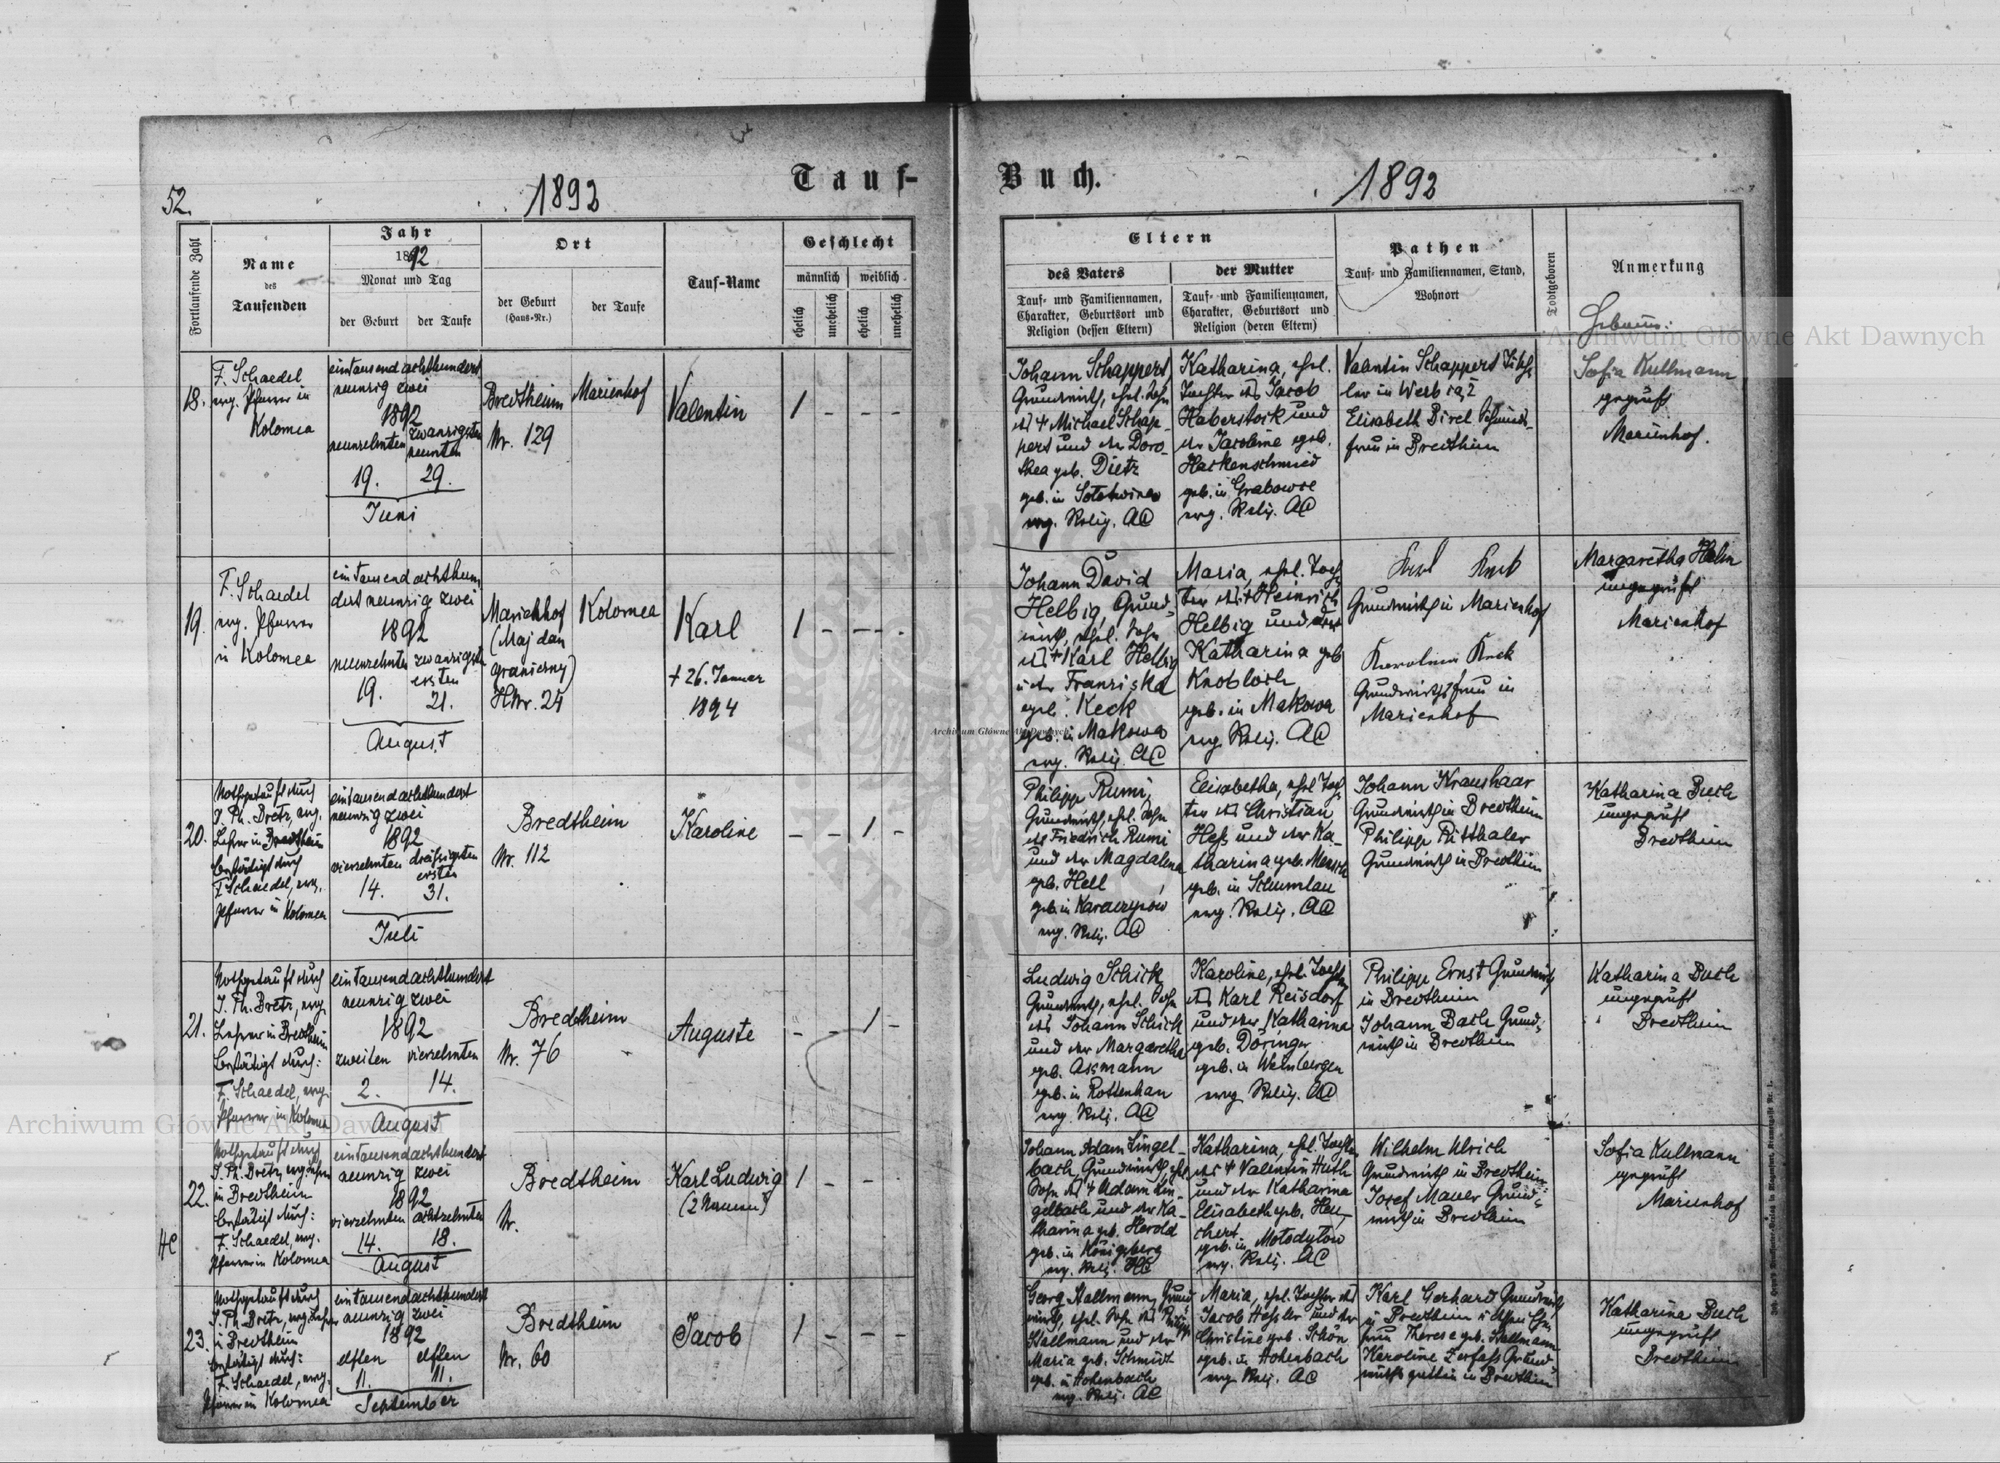 52.
1892
Tauf-
Buch.
1892
Fortlaufende Zahl
Name
des
Taufenden
Jahr
1892
Monat und Tag
der Geburt
der Taufe
Ort
der Geburt
(Haus-Nr.)
der Taufe
Tauf-Name
Geschlecht
männlich
weiblich
ehelich
unehelich
ehelich
unehelich
Eltern
des Vaters
Tauf- und Familiennamen,
Charakter, Geburtsort und
Religion (dessen Eltern)
der Mutter
Tauf- und Familiennamen,
Charakter, Geburtsort und
Religion (deren Eltern)
Pathen
Tauf- und Familiennamen, Stand,
Wohnort
Todtgeboren
Anmerkung
18.
F. Schaedel
evg. Pfarrer in
Kolomea
eintausend achthundert
neunzig zwei
1892
neunzehnten
zwanzigsten
neunten
19.
29.
Juni
Bredtheim
Nr. 129
Marienhof
Valentin
1 - - -
Johann Schappert
Grundwirth, ehel. Sohn
des † Michael Schap-
pert und der Doro-
thea geb. Dietz
geb. in
evg. Relig. AC
Katharina, ehel.
Tochter des Jacob
Haberstock und
der Jacobine geb.
Hackenschmied
geb. in Grabowce
evg. Relig. AC
Valentin Schappert
in
Elisabeth
frau in Bredtheim
Sofia Kullmann
geprüft
Marienhof.
19.
F. Schaedel
evg. Pfarrer
in Kolomea
eintausend achthun
dert neunzig zwei
1892
neunzehnten
zwanzigsten
ersten
19.
21.
August
Marienhof
(Majdan
graniczny)
HNr. 24
Kolomea
Karl
† 26. Januar
1894
1 - - - -
Johann David
Helbig, Grund-
wirth, ehel. Sohn
des † Karl Helbig
u der Franziska
geb. Keck
geb. in Makowa
evg. Relig. AC
Maria, ehel. Toch-
ter des † Heinrich
Helbig und der
Katharina geb
Knobloch
geb. in Makowa
evg Relig. AC
Karl Keck
Grundwirth in Marienhof
Karolina Keck
Grundwirthsfrau in
Marienhof
Margaretha Helm
ungeprüft
Marienhof
20.
Nothgetauft durch
J. Ph. Bretz, evg.
Lehrer in Bredtheim
bestätigt durch
F Schaedel, evg.
Pfarrer in Kolomea
eintausend achthundert
neunzig zwei
1892
vierzehnten
dreißigsten
ersten
14.
31.
Juli
Bredtheim
Nr. 112
Karoline
- - 1 -
Philipp Rumi,
Grundwirth, ehel. Sohn
des Friedrich Rumi
und der Magdalena
geb. Hell
geb. in
evg. Relig. AC
Elisabetha, ehel Toch-
ter des Christian
Heß und der Ka-
tharina geb.
geb. in Schumlau
evg. Relig. AC
Johann Kraushaar
Grundwirth in Bredtheim
Philipp Pitthaler
Grundwirth in Bredtheim
Katharina Buch
ungeprüft
Bredtheim
21.
Nothgetauft durch
J. Ph. Bretz, evg.
Lehrer in Bredtheim
bestätigt durch:
F. Schaedel, evg.
Pfarrer in Kolomea
eintausend achthundert
neunzig zwei
1892
zweiten
vierzehnten
2.
14.
August
Bredtheim
Nr. 76
Auguste
- - 1 -
Ludwig Schick
Grundwirth, ehel. Sohn
des Johann Schick
und der Margaretha
geb. Assmann
geb. in Rottenhan
evg. Relig. AC
Karoline, ehel. Tochter
des Karl Reisdorf
und der Katharina
geb. Döringer
geb. in Weinbergen
evg Relig. AC
Philipp Ernst Grundwirth
in Bredtheim
Johann Bach Grund-
wirth in Bredtheim
Katharina Buch
ungeprüft
Bredtheim
22.
HC
Nothgetauft durch
J. Ph. Bretz, evg Lehrer
in Bredtheim
bestätigt durch:
F. Schaedel, evg.
Pfarrer in Kolomea
eintausend achthundert
neunzig zwei
1892
vierzehnten
achtzehnten
14.
18.
August
Bredtheim
Nr.
Karl Ludwig
(2 Namen)
1 - -
Johann Adam Lingel-
bach Grundwirth ehel
Sohn des † Adam Lin-
gelbach und der Ka-
tharina geb. Herold
geb. in Königsberg
evg. Relig. HC
Katharina, ehel. Tochter
des † Valentin Huth
und der Katharina
Elisabeth geb. Heu-
chert
geb. in Molodylow
evg. Relig. AC
Wilhelm Ulrich
Grundwirth in Bredtheim
Josef Mauer Grund-
wirth in Bredtheim
Sofia Kullmann
geprüft
Marienhof
23.
Nothgetauft durch
J. Ph. Bretz, evg Lehrer
in Bredtheim
bestätigt durch:
F. Schaedel, evg.
Pfarrer in Kolomea
eintausend achthundert
neunzig zwei
1892
elften
elften
11.
11.
September
Bredtheim
Nr. 60
Jacob
1 - - -
Georg Kallmann, Grund
wirth, ehel. Sohn des Philipp
Kallmann und der
Maria geb. Schmidt
geb. in Hohenbach
evg. Relig. AC
Maria, ehel. Tochter des
Jacob Hessler und der
Christine geb. Schön
geb. in Hohenbach
evg Relig. AC
Karl Gerhard Grundwirth
in Bredtheim u dessen
frau Therese geb. Kallmann
Karoline Zerfass Grund-
wirths gattin in Bredtheim
Katharina Buch
ungeprüft
Bredtheim
Archiwum Główne Akt Dawnych
Archiwum Główne Akt Dawnych
Archiwum Główne Akt Dawnych